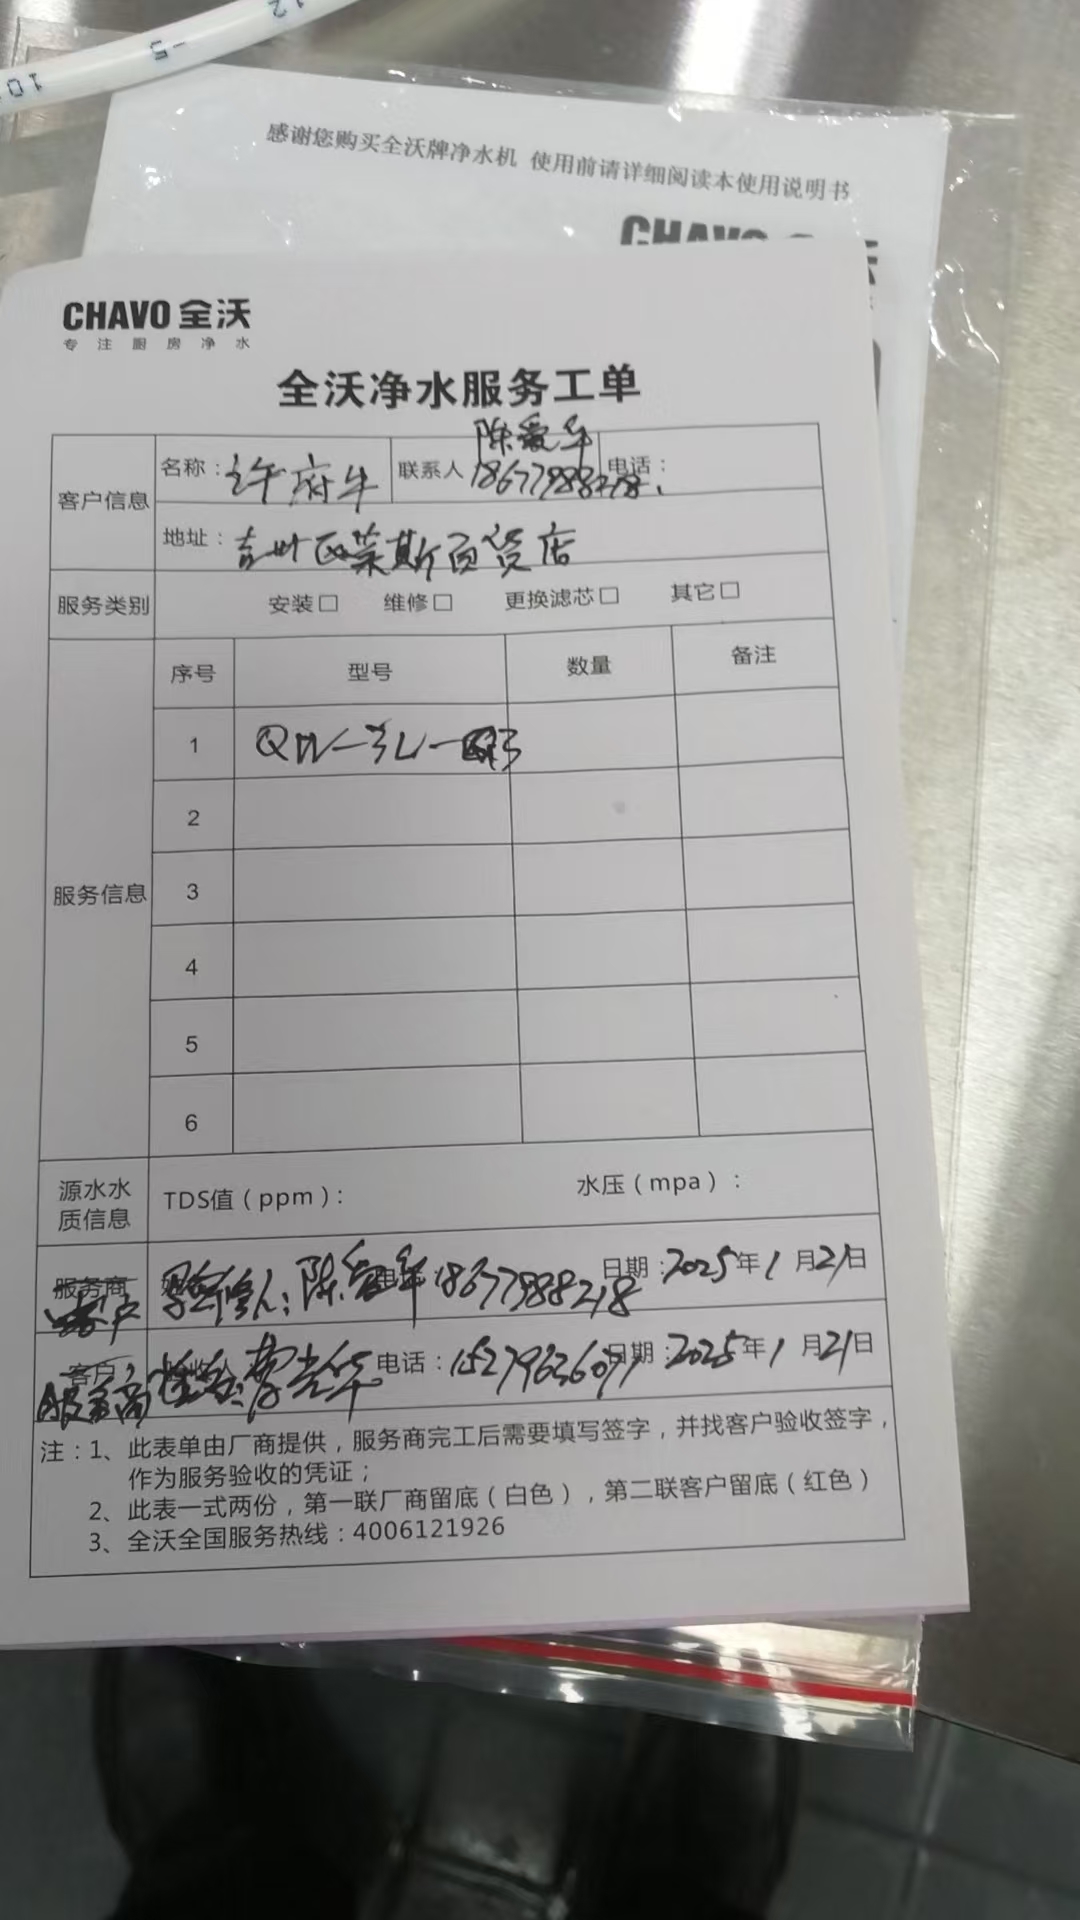 12
-5
10
感谢您购买全沃牌净水机 使用前请详细阅读本使用说明书
CHAVO
CHAVO 全沃
专注厨房净水
全沃净水服务工单
客户信息 名称：许府牛 联系人 陈爱华 18677988218 电话：
地址：吉州区莱斯百货店
服务类别 安装□ 维修□ 更换滤芯□ 其它□
服务信息 序号 型号 数量 备注
1
2
3
4
5
6
源水水质信息 TDS值（ppm）： 水压（mpa）：
服务商 客户 陈爱华 18677988218 日期：2025年1月21日
客户 服务商 电话：15279636077 日期：2025年1月21日
注：1、此表单由厂商提供，服务商完工后需要填写签字，并找客户验收签字，
作为服务验收的凭证；
2、此表一式两份，第一联厂商留底（白色），第二联客户留底（红色）
3、全沃全国服务热线：4006121926